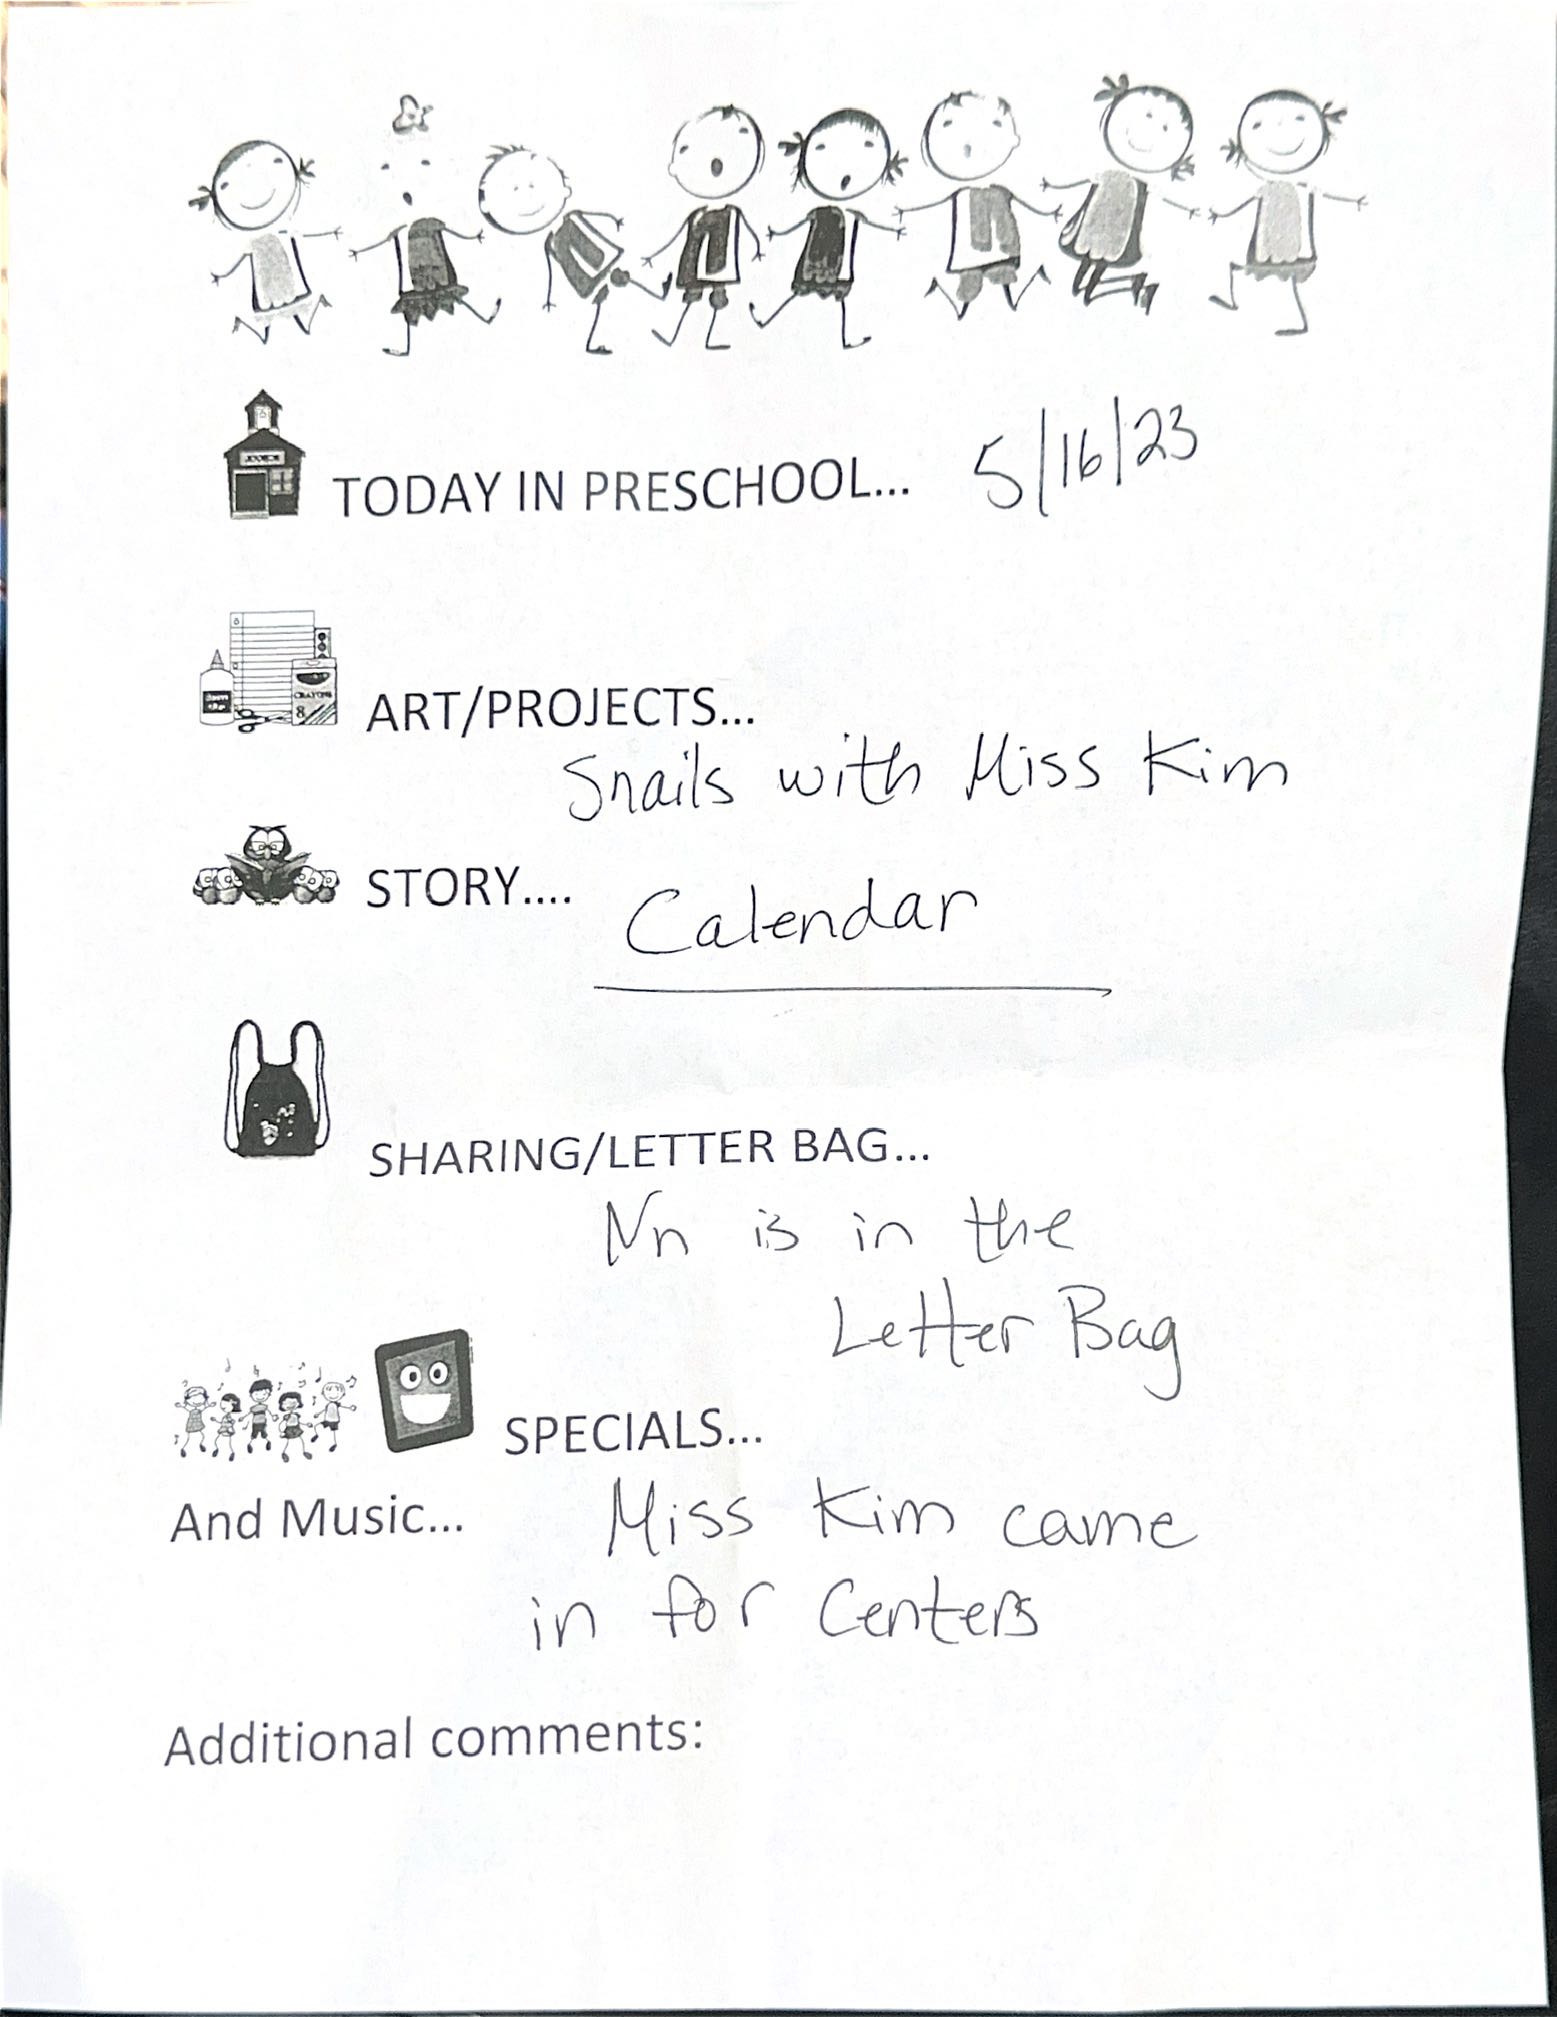 TODAY IN PRESCHOOL... 5/16/23
ART/PROJECTS...
Snails with Miss Kim
STORY.... Calendar
SHARING/LETTER BAG...
Nn is in the
Letter Bag
SPECIALS...
And Music... Miss Kim came
in for Centers
Additional comments: